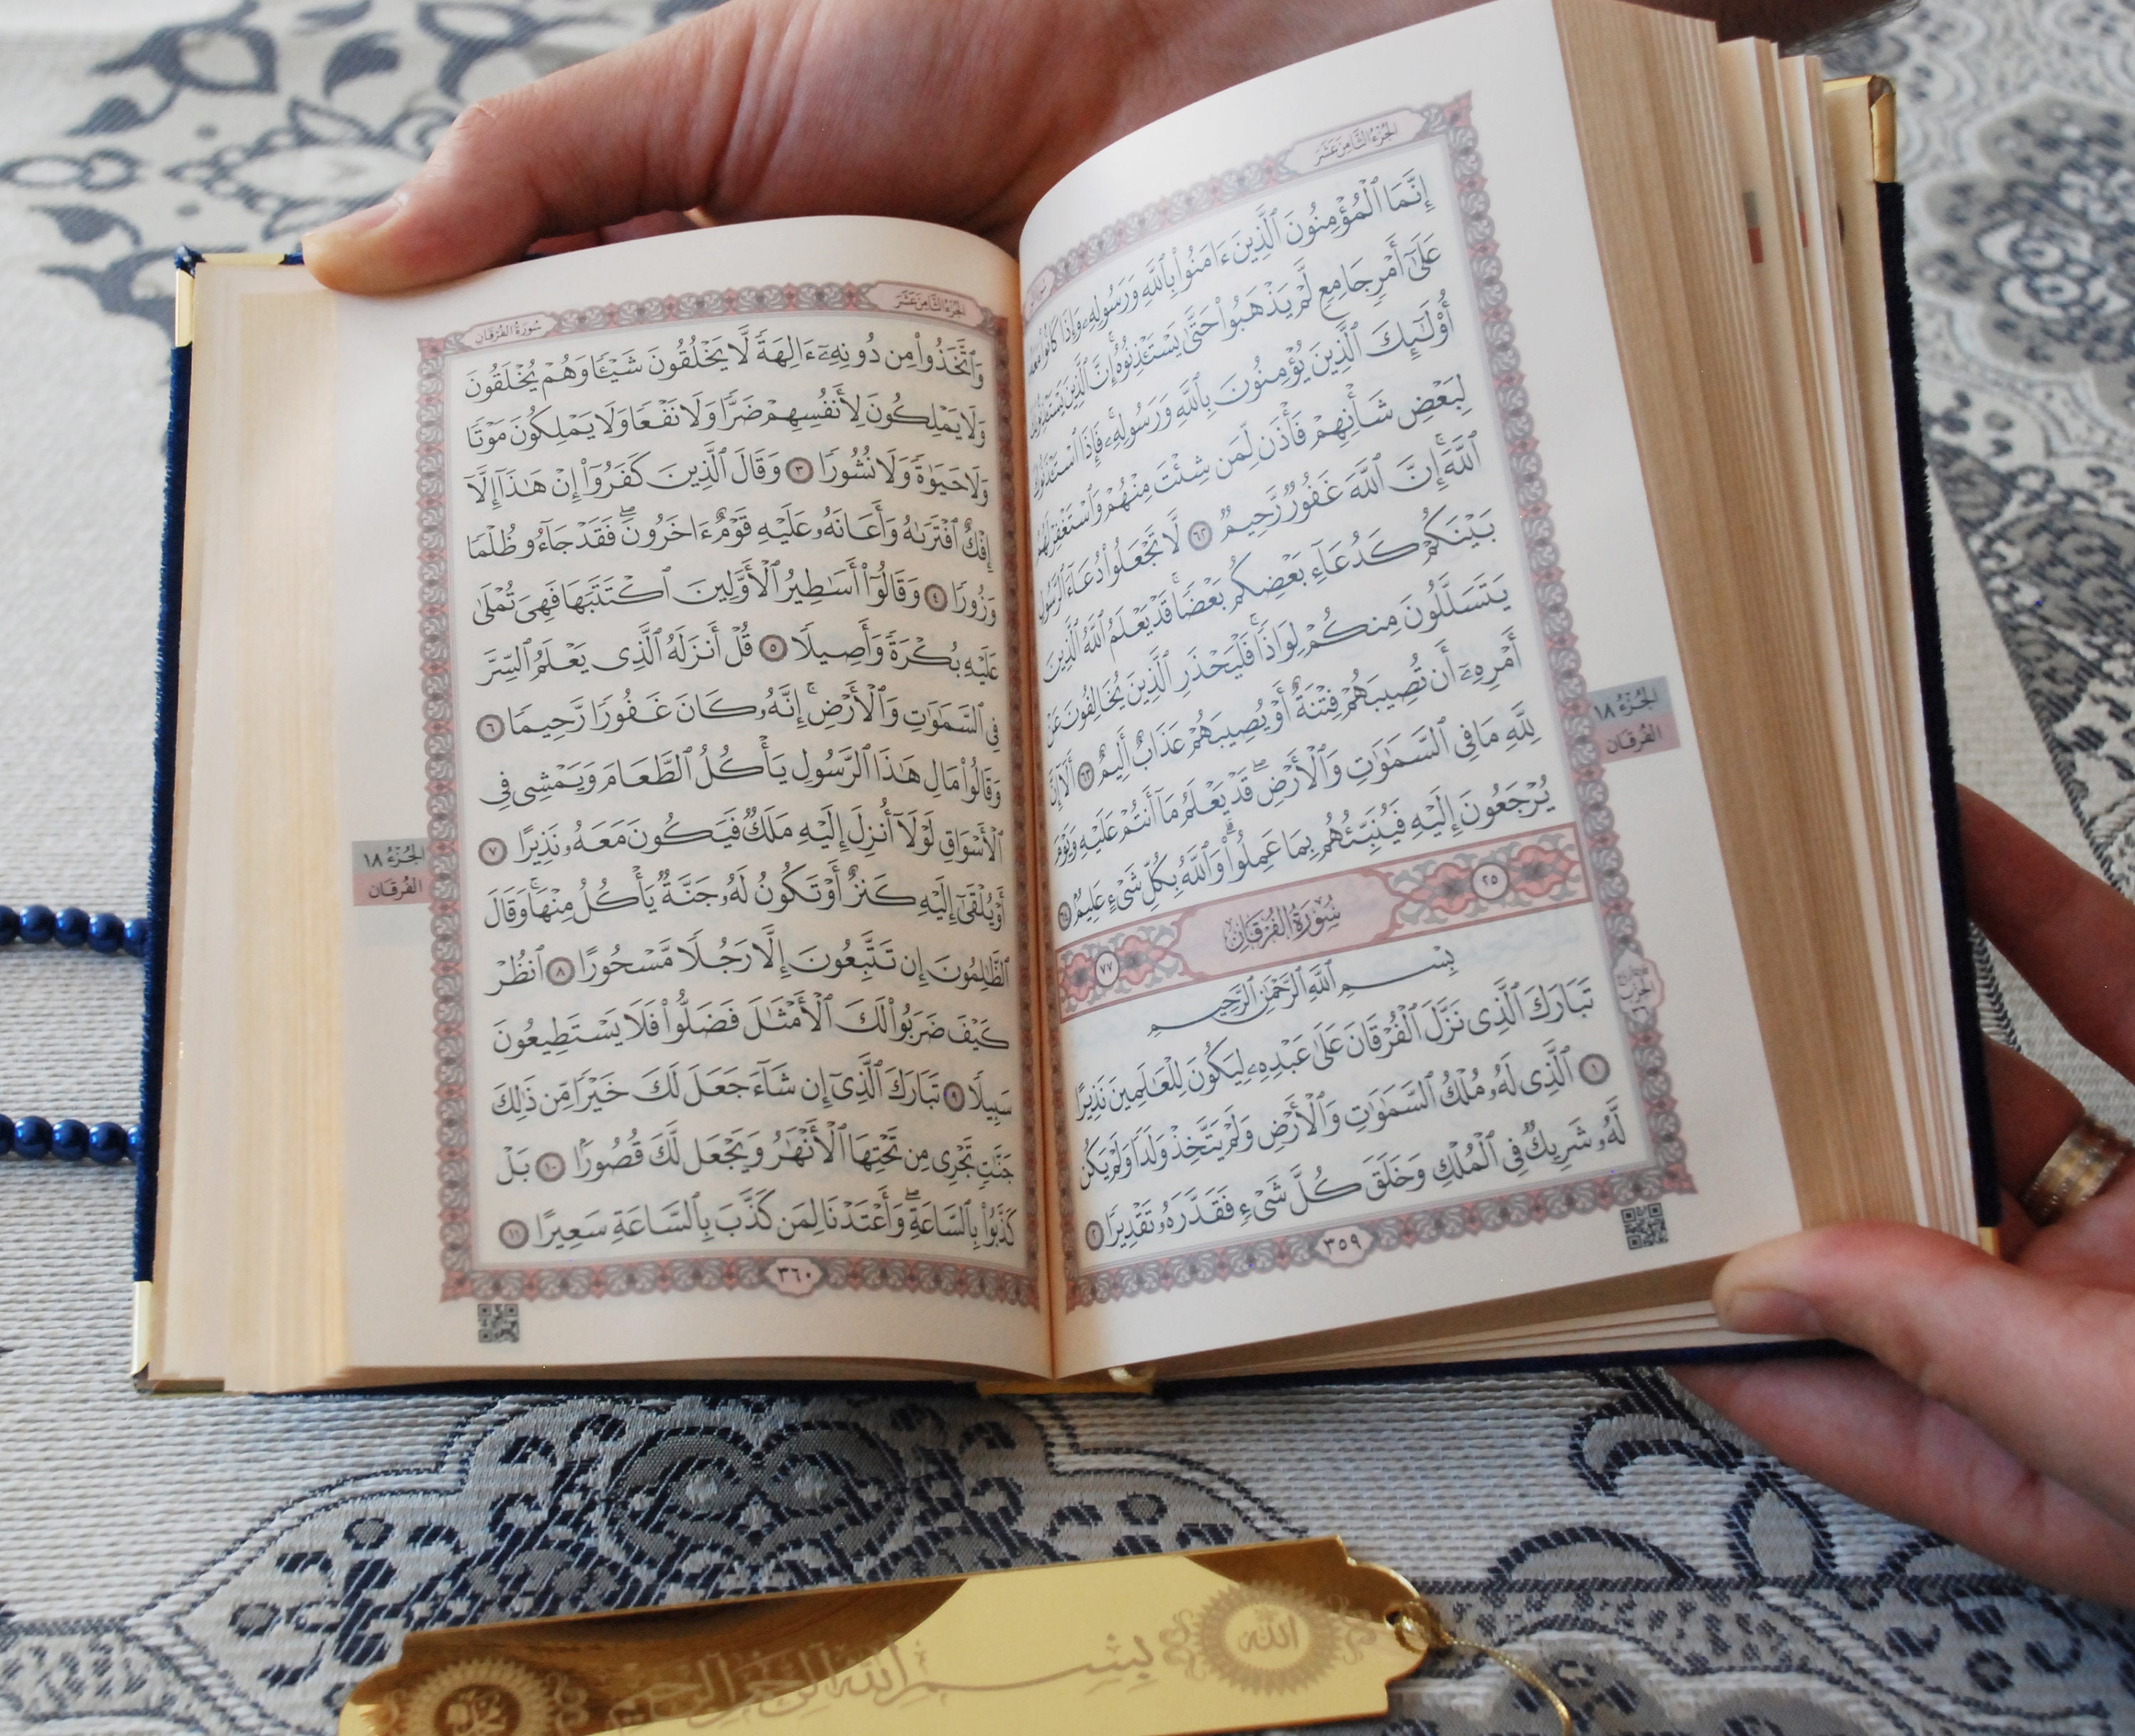 الجُزْءُ الثَّامِنَ عَشَرَ
إِنَّمَا ٱلْمُؤْمِنُونَ ٱلَّذِينَ ءَامَنُوا۟ بِٱللَّهِ وَرَسُولِهِۦ وَإِذَا كَانُوا۟ مَعَهُۥ
عَلَىٰٓ أَمْرٍ جَامِعٍ لَّمْ يَذْهَبُوا۟ حَتَّىٰ يَسْتَـْٔذِنُوهُ ۚ إِنَّ ٱلَّذِينَ يَسْتَـْٔذِنُونَكَ
أُو۟لَـٰٓئِكَ ٱلَّذِينَ يُؤْمِنُونَ بِٱللَّهِ وَرَسُولِهِۦ ۚ فَإِذَا ٱسْتَـْٔذَنُوكَ
لِبَعْضِ شَأْنِهِمْ فَأْذَن لِّمَن شِئْتَ مِنْهُمْ وَٱسْتَغْفِرْ لَهُمُ
ٱللَّهَ ۚ إِنَّ ٱللَّهَ غَفُورٌ رَّحِيمٌ ٦٢ لَّا تَجْعَلُوا۟ دُعَآءَ ٱلرَّسُولِ
بَيْنَكُمْ كَدُعَآءِ بَعْضِكُم بَعْضًا ۚ قَدْ يَعْلَمُ ٱللَّهُ ٱلَّذِينَ
يَتَسَلَّلُونَ مِنكُمْ لِوَاذًا ۚ فَلْيَحْذَرِ ٱلَّذِينَ يُخَالِفُونَ عَنْ
أَمْرِهِۦٓ أَن تُصِيبَهُمْ فِتْنَةٌ أَوْ يُصِيبَهُمْ عَذَابٌ أَلِيمٌ ٦٣ أَلَآ إِنَّ
لِلَّهِ مَا فِى ٱلسَّمَـٰوَٰتِ وَٱلْأَرْضِ ۖ قَدْ يَعْلَمُ مَآ أَنتُمْ عَلَيْهِ وَيَوْمَ
يُرْجَعُونَ إِلَيْهِ فَيُنَبِّئُهُم بِمَا عَمِلُوا۟ ۗ وَٱللَّهُ بِكُلِّ شَىْءٍ عَلِيمٌۢ ٦٤
٢٥ سُورَةُ الفُرْقَانِ ٧٧
بِسْمِ ٱللَّهِ ٱلرَّحْمَـٰنِ ٱلرَّحِيمِ
تَبَارَكَ ٱلَّذِى نَزَّلَ ٱلْفُرْقَانَ عَلَىٰ عَبْدِهِۦ لِيَكُونَ لِلْعَـٰلَمِينَ نَذِيرًا
١ ٱلَّذِى لَهُۥ مُلْكُ ٱلسَّمَـٰوَٰتِ وَٱلْأَرْضِ وَلَمْ يَتَّخِذْ وَلَدًا وَلَمْ يَكُن
لَّهُۥ شَرِيكٌ فِى ٱلْمُلْكِ وَخَلَقَ كُلَّ شَىْءٍ فَقَدَّرَهُۥ تَقْدِيرًا ٢
٣٥٩
الجُزْءُ ١٨
الفُرْقَان
الجُزْءُ الثَّامِنَ عَشَرَ
سُورَةُ الفُرْقَانِ
وَٱتَّخَذُوا۟ مِن دُونِهِۦٓ ءَالِهَةً لَّا يَخْلُقُونَ شَيْـًٔا وَهُمْ يُخْلَقُونَ
وَلَا يَمْلِكُونَ لِأَنفُسِهِمْ ضَرًّا وَلَا نَفْعًا وَلَا يَمْلِكُونَ مَوْتًا
وَلَا حَيَوٰةً وَلَا نُشُورًا ٣ وَقَالَ ٱلَّذِينَ كَفَرُوٓا۟ إِنْ هَـٰذَآ إِلَّآ
إِفْكٌ ٱفْتَرَىٰهُ وَأَعَانَهُۥ عَلَيْهِ قَوْمٌ ءَاخَرُونَ ۖ فَقَدْ جَآءُو ظُلْمًا
وَزُورًا ٤ وَقَالُوٓا۟ أَسَـٰطِيرُ ٱلْأَوَّلِينَ ٱكْتَتَبَهَا فَهِىَ تُمْلَىٰ
عَلَيْهِ بُكْرَةً وَأَصِيلًا ٥ قُلْ أَنزَلَهُ ٱلَّذِى يَعْلَمُ ٱلسِّرَّ
فِى ٱلسَّمَـٰوَٰتِ وَٱلْأَرْضِ ۚ إِنَّهُۥ كَانَ غَفُورًا رَّحِيمًا ٦
وَقَالُوا۟ مَالِ هَـٰذَا ٱلرَّسُولِ يَأْكُلُ ٱلطَّعَامَ وَيَمْشِى فِى
ٱلْأَسْوَاقِ ۙ لَوْلَآ أُنزِلَ إِلَيْهِ مَلَكٌ فَيَكُونَ مَعَهُۥ نَذِيرًا ٧
أَوْ يُلْقَىٰٓ إِلَيْهِ كَنزٌ أَوْ تَكُونُ لَهُۥ جَنَّةٌ يَأْكُلُ مِنْهَا ۚ وَقَالَ
ٱلظَّـٰلِمُونَ إِن تَتَّبِعُونَ إِلَّا رَجُلًا مَّسْحُورًا ٨ ٱنظُرْ
كَيْفَ ضَرَبُوا۟ لَكَ ٱلْأَمْثَـٰلَ فَضَلُّوا۟ فَلَا يَسْتَطِيعُونَ
سَبِيلًا ٩ تَبَارَكَ ٱلَّذِىٓ إِن شَآءَ جَعَلَ لَكَ خَيْرًا مِّن ذَٰلِكَ
جَنَّـٰتٍ تَجْرِى مِن تَحْتِهَا ٱلْأَنْهَـٰرُ وَيَجْعَل لَّكَ قُصُورًۢا ١٠ بَلْ
كَذَّبُوا۟ بِٱلسَّاعَةِ ۖ وَأَعْتَدْنَا لِمَن كَذَّبَ بِٱلسَّاعَةِ سَعِيرًا ١١
٣٦٠
الجُزْءُ ١٨
الفُرْقَان
الله
بسم الله الرحمن الرحيم
محمد